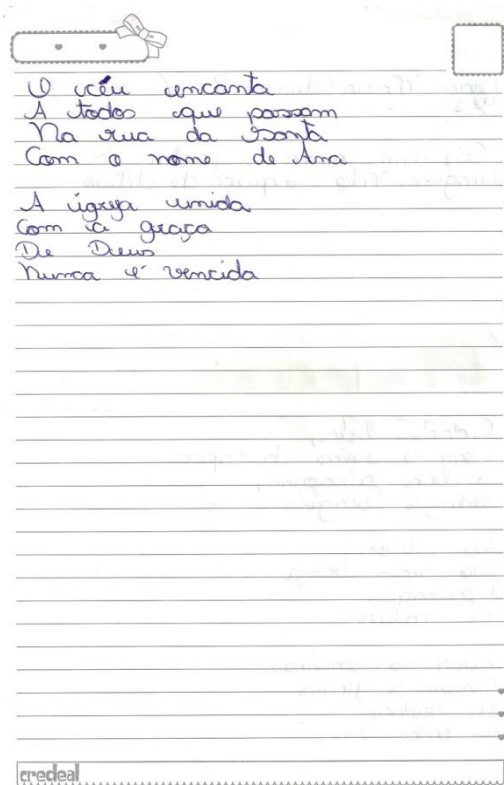 O céu encanta
A todos que passam
Na rua da Santa
Com o nome de Ana
A igreja unida
Com a graça
De Deus
Nunca é vencida
credeal